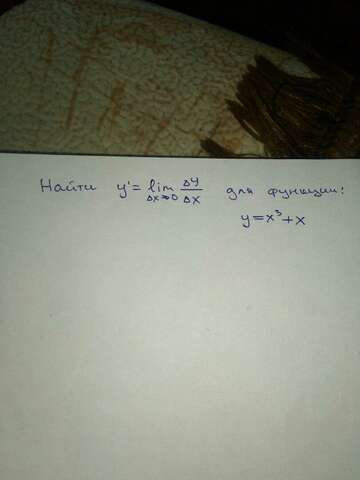 Найти y' = lim Δx→0 Δy/Δx для функции:
y = x³ + x